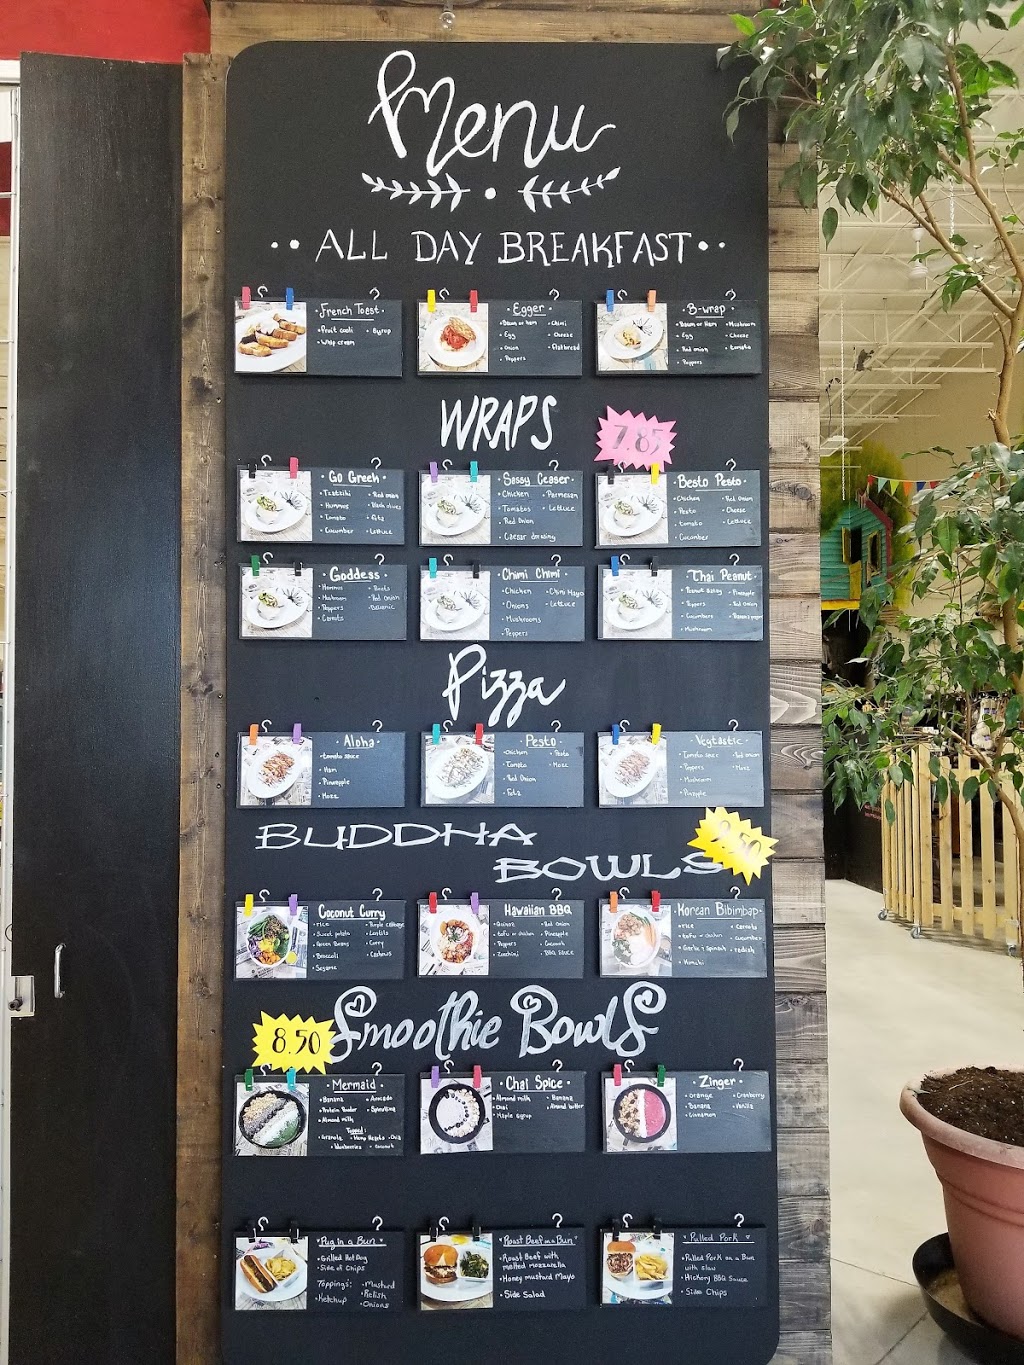 Menu
·· ALL DAY BREAKFAST ··
· French Toast ·
• Fruit culi • Syrup
• Whip cream
· Egger ·
• Bacon or ham • Chimi
• Egg • Cheese
• Onion • Flatbread
• Peppers
· B-wrap ·
• Bacon or Ham • Mushroom
• Egg • Cheese
• Red onion • tomato
• Peppers
WRAPS
7.85
· Go Greek ·
• Tzatziki • Red onion
• Hummus • Black olives
• Tomato • Feta
• Cucumber • Lettuce
· Sassy Ceaser ·
• Chicken • Parmesan
• Tomatos • Lettuce
• Red Onion
• Caesar dressing
· Besto Pesto ·
• Chicken • Red Onion
• Pesto • Cheese
• tomato • Lettuce
• Cucumber
· Goddess ·
• Hummus
• Mushroom • Red Onion
• Peppers • Balsamic
• Carrots
· Chimi Chimi ·
• Chicken • Chimi Mayo
• Onions • Lettuce
• Mushrooms
• Peppers
· Thai Peanut ·
• Pineapple
• Peppers • Red Onion
• Cucumbers
• Mushroom
Pizza
· Aloha ·
• tomato sauce
• Ham
• Pineapple
• Mozz
· Pesto ·
• Chicken • Pesto
• Tomato • Mozz
• Red Onion
• Feta
· Vegtastic ·
• Tomato sauce • Red onion
• Peppers • Mozz
• Mushroom
• Pinapple
BUDDHA
BOWLS
9.50
· Coconut Curry ·
• rice • Purple cabbage
• Sweet potato • Lentils
• Green Beans • Curry
• Broccoli • Cashews
• Sesame
· Hawaiian BBQ ·
• Quinoa • Red onion
• tofu or chicken • Pineapple
• Peppers • Coconut
• Zucchini • BBQ sauce
· Korean Bibimbap ·
• rice • Carrots
• tofu or chicken • cucumber
• Garlic + Spinach • radish
• Kimchi
8.50
Smoothie Bowls
· Mermaid ·
• Banana • Avocado
• Protein Powder • Spirulina
• Almond milk
Topped:
• Granola • Hemp Hearts • Chia
• blueberries • coconut
· Chai Spice ·
• Almond milk • Banana
• Chai • Almond butter
• Maple syrup
· Zinger ·
• orange • Cranberry
• Banana • Vanilla
• Cinnamon
Pug in a Bun
• Grilled Hot Dog
• Side of Chips
Toppings: • Mustard
• Ketchup • Relish
• Onions
Roast Beef in a Bun
• Roast Beef with
melted mozzarella
• Honey mustard Mayo
• Side Salad
Pulled Pork
• Pulled Pork on a Bun
with slaw
• Hickory BBQ Sauce
• Side Chips